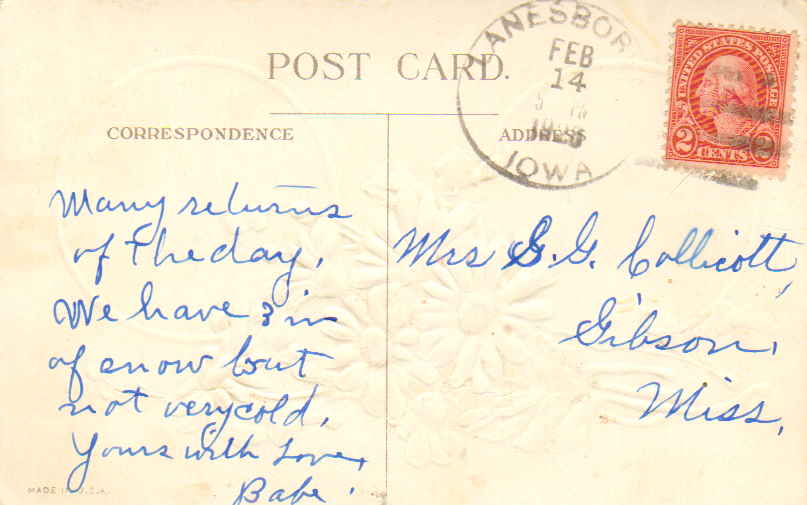 POST CARD.
CORRESPONDENCE
ADDRESS
LANESBOR
FEB
14
IOWA
UNITED STATES POSTAGE
2 CENTS 2
Many returns
of the day,
We have 3 in
of snow but
not very cold,
Yours with Love,
Babe.
Mrs G. G. Collicott,
Gibson,
Miss,
MADE IN U.S.A.